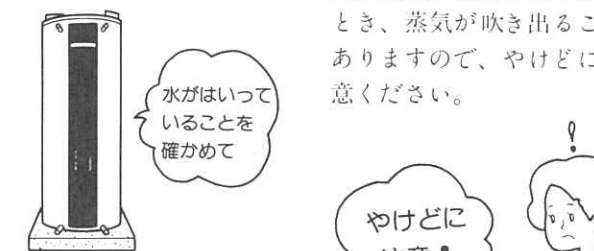 水がはいって
いることを
確かめて
とき、蒸気が吹き出るこ
ありますので、やけどに
意ください。
やけどに